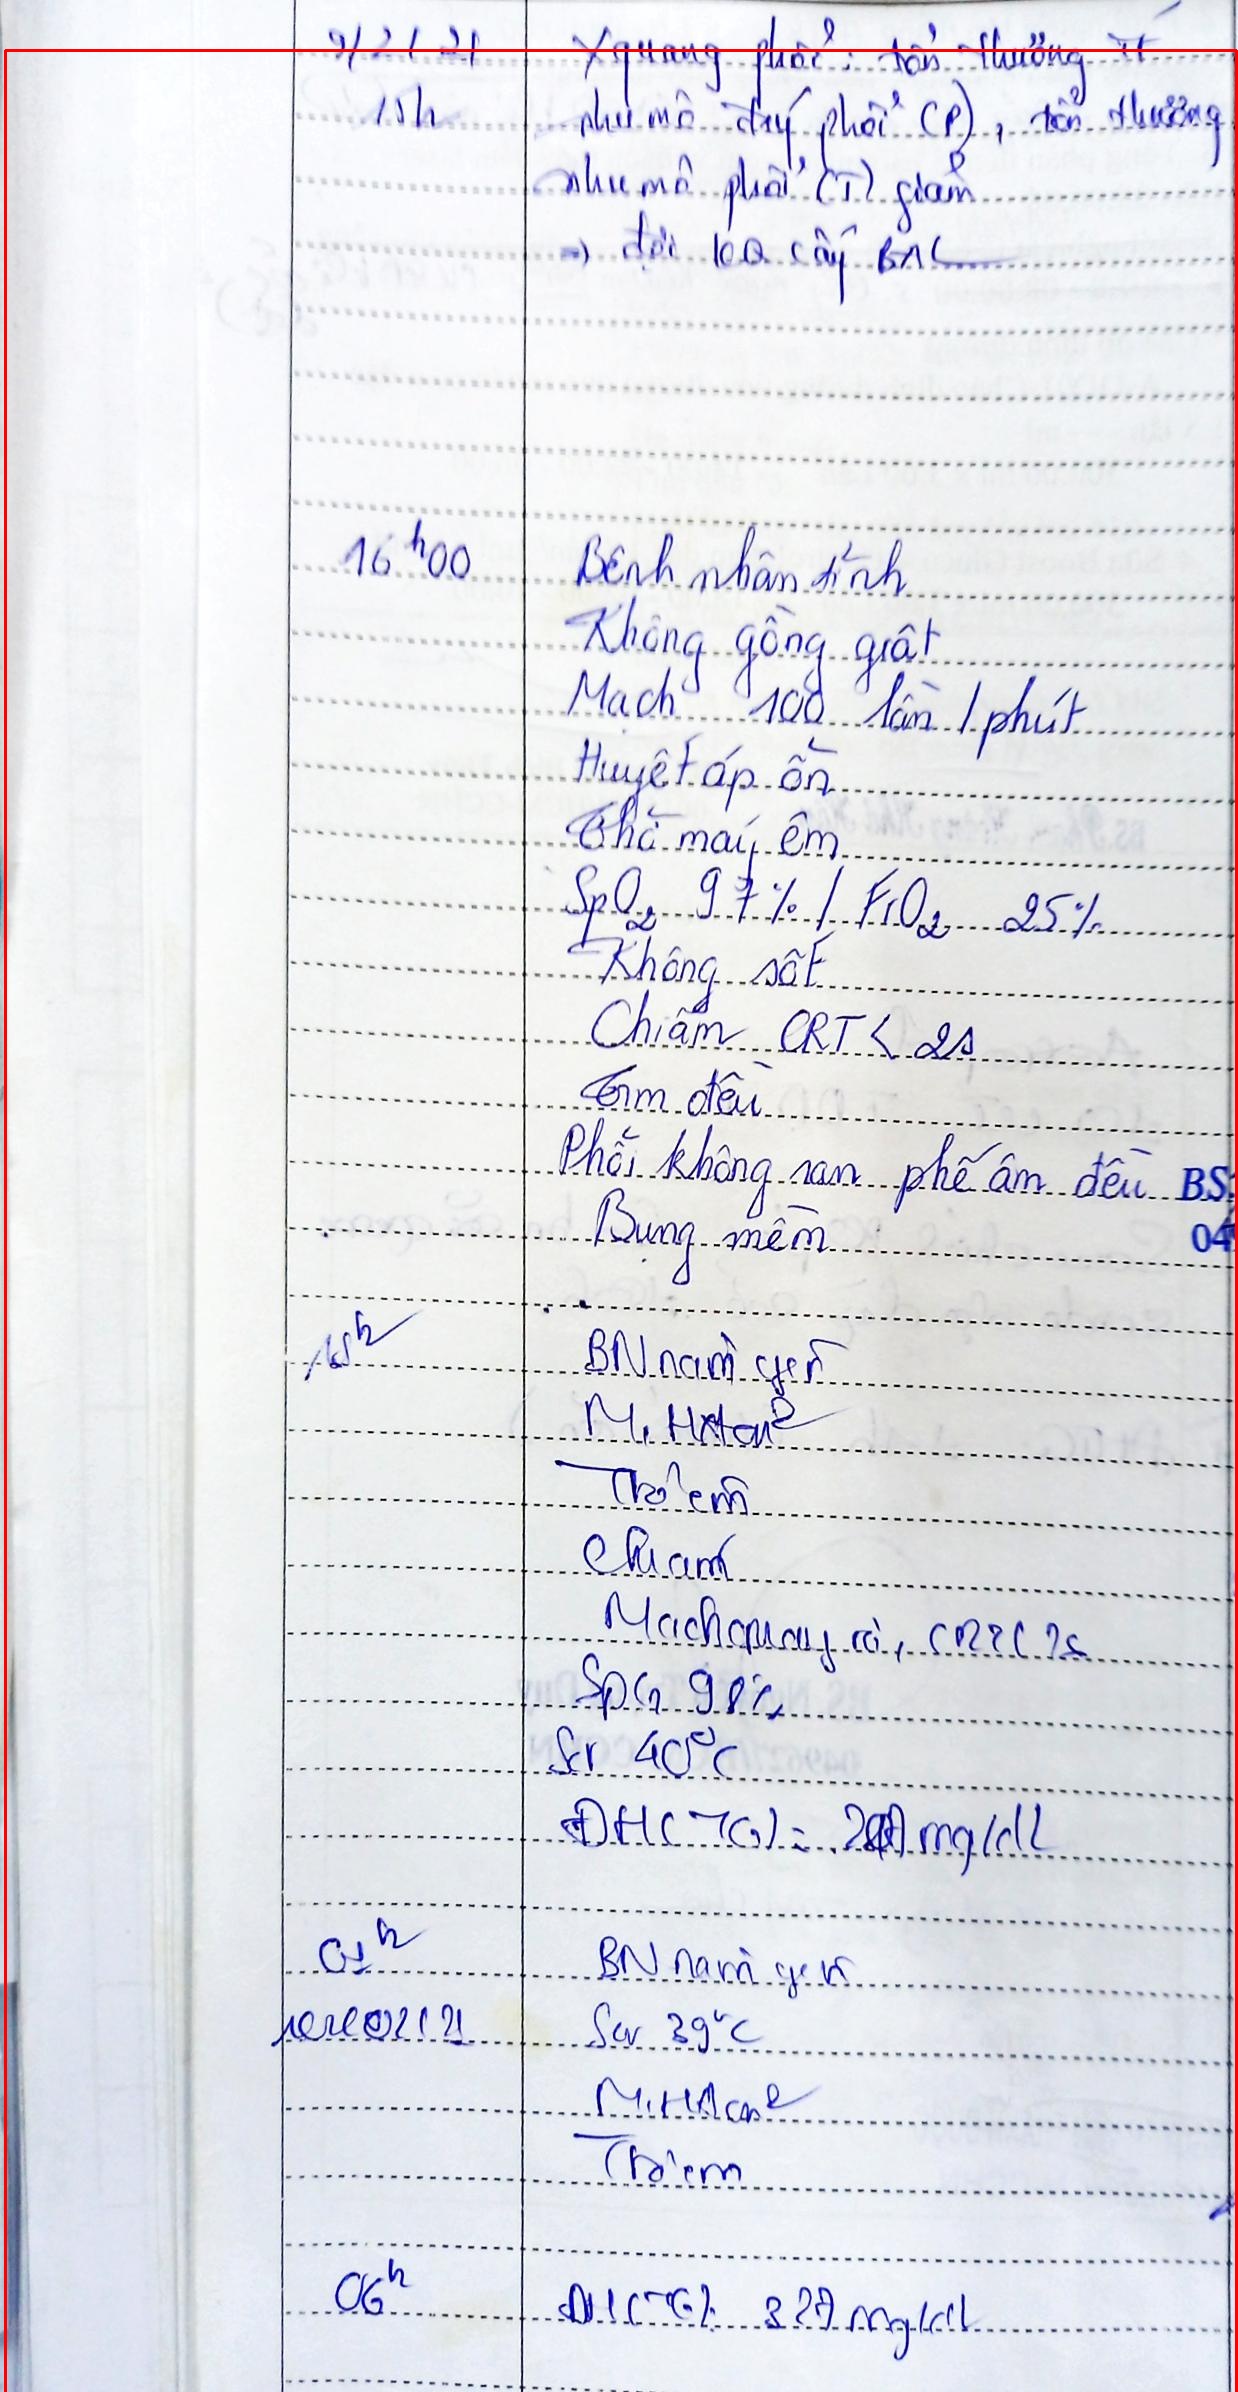 9/2/21 Xquang phổi: tổn thương ít
15h nhu mô đáy phổi (P), tổn thương
nhu mô phổi (T) giảm
=> đợi KQ cấy BAL
16h00 Bệnh nhân tỉnh
Không gồng giật
Mạch 100 lần/phút
Huyết áp ổn
Thở máy êm
SpO2 97% / FiO2 25%
Không sốt
Chi ấm CRT < 2s
Tim đều
Phổi không ran phế âm đều BS
Bụng mềm 04
BN nằm yên
M, HA ổn
Thở êm
Chi ấm
Mạch quay rõ, CRT < 2s
SpO2 98%
Sốt 40°C
ĐH (TG) = mg/dl
01h BN nằm yên
Sốt 39°C
M, HA ổn
Thở êm
06h ĐH (TG): 327 mg/dl